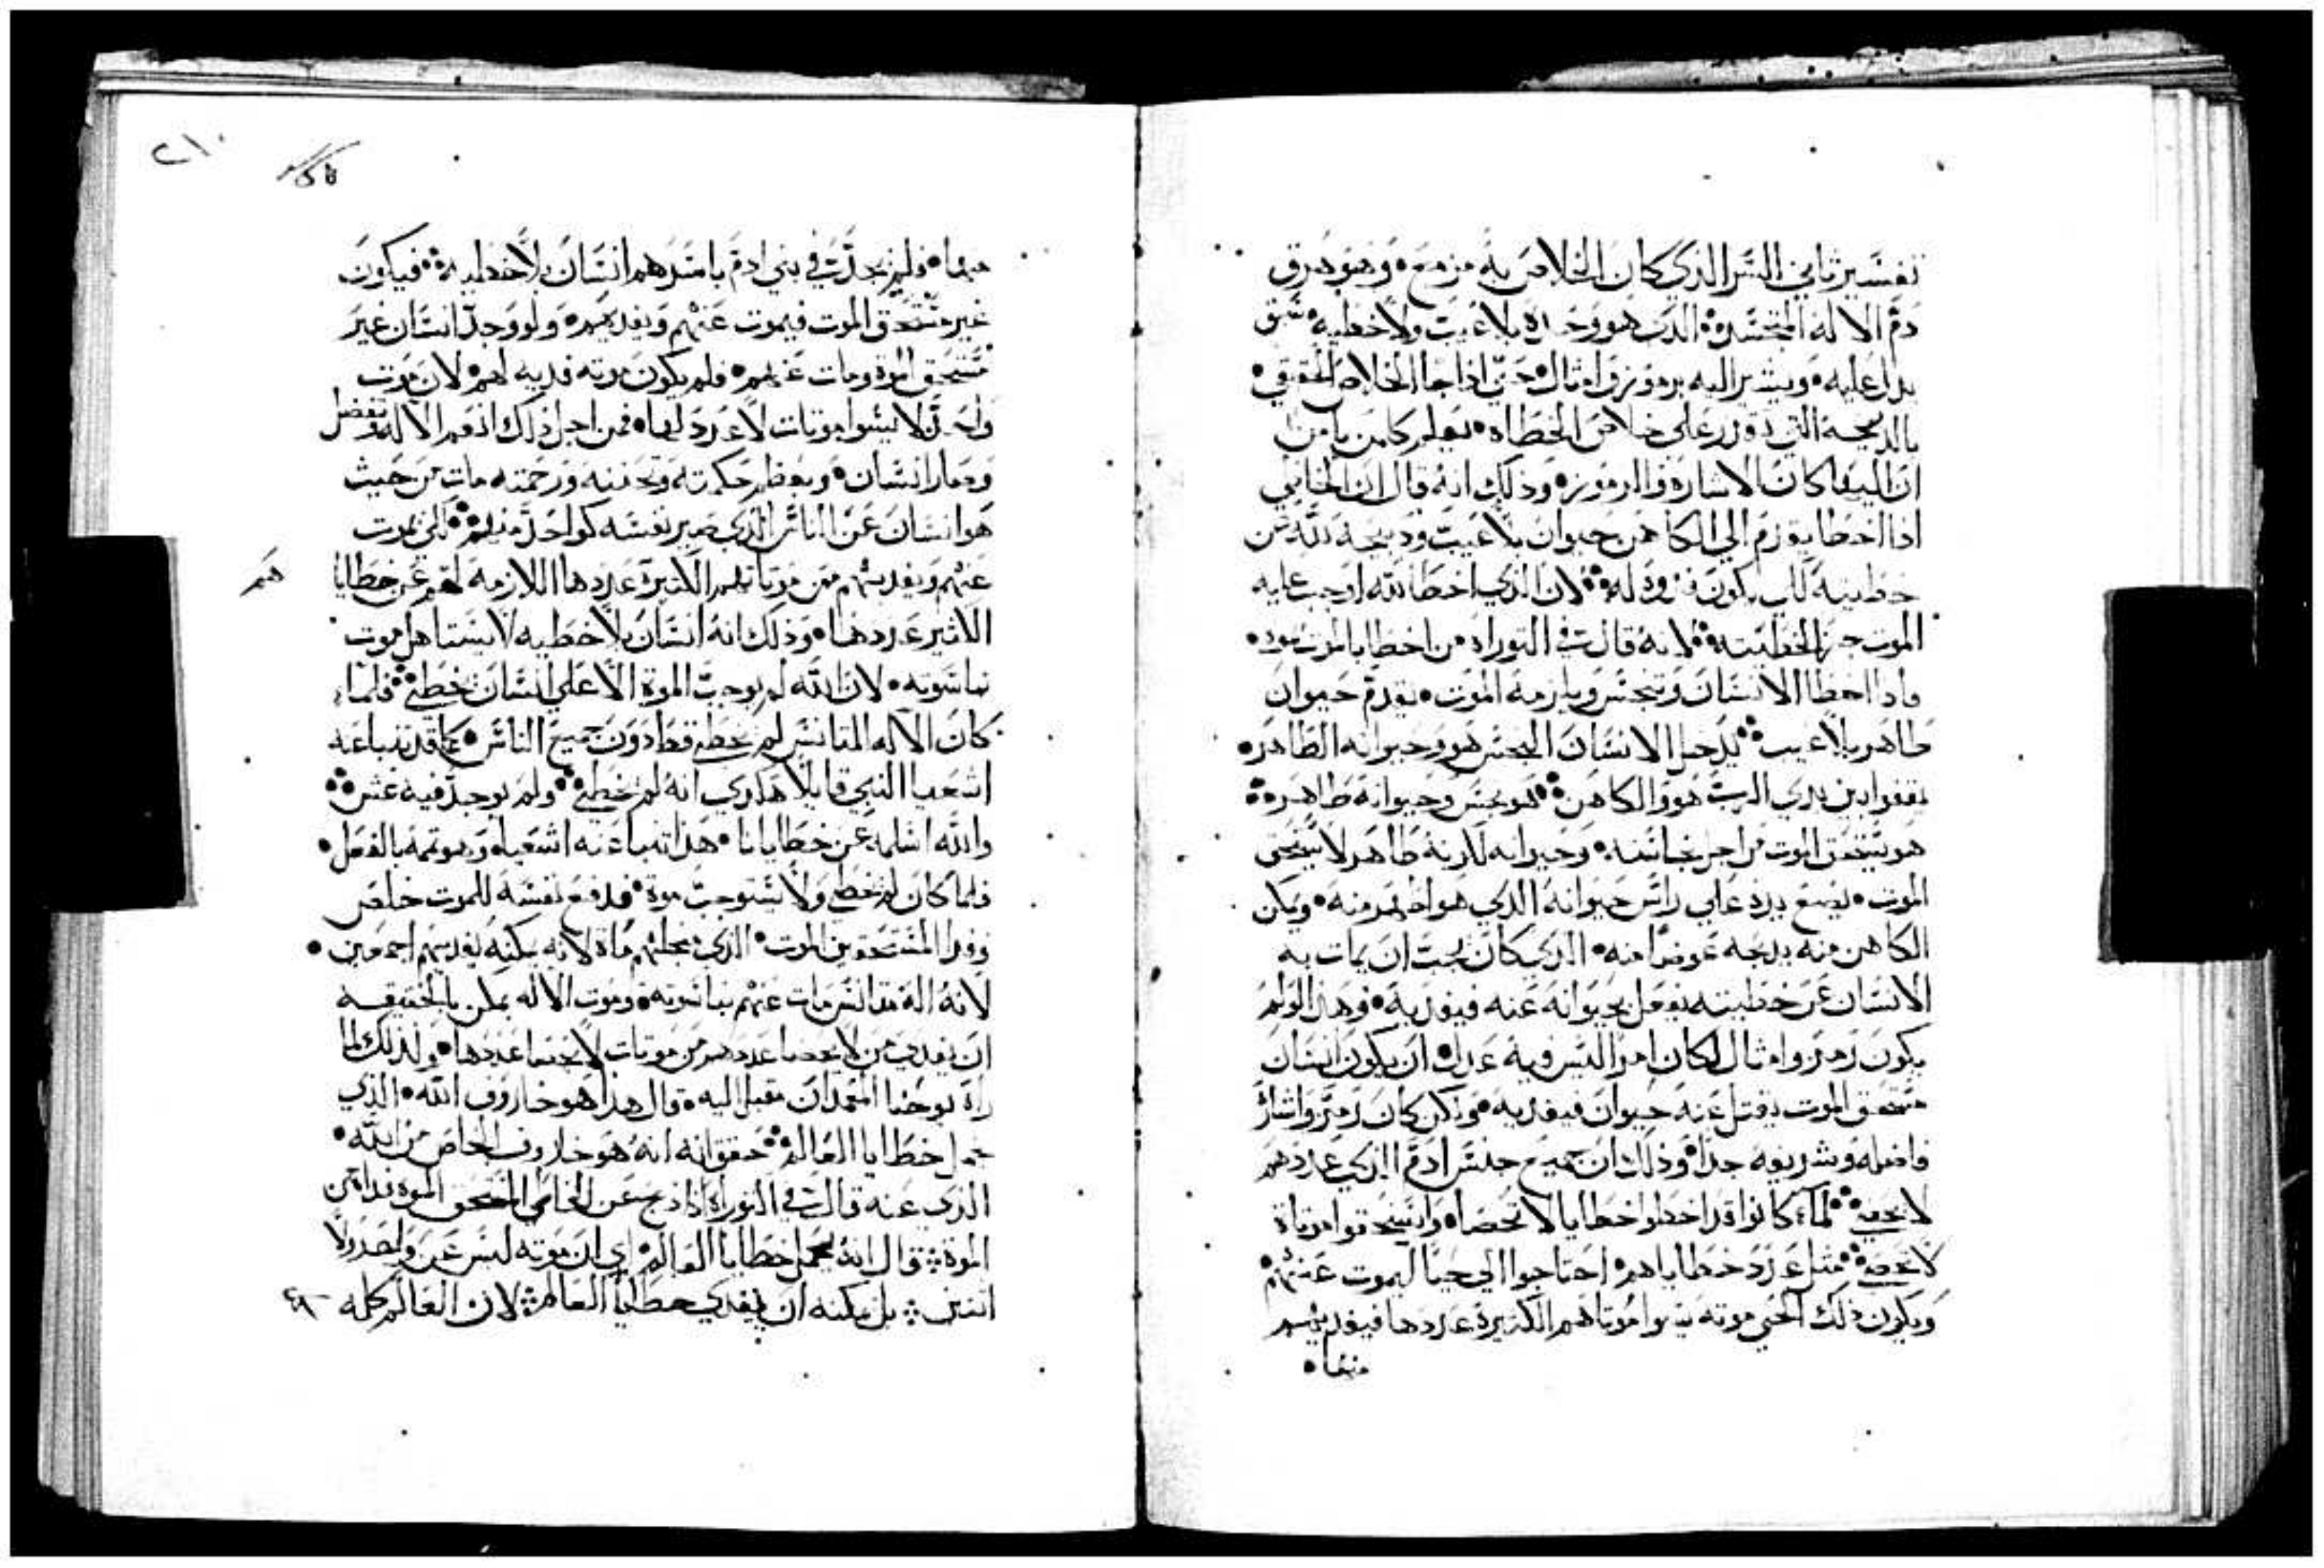 تفسير ثاني السر الذي كان الخلاص به مزمع • وهو هرق
دم الاله المتجسد • الذي هو وحده بلا عيب ولا خطيه • سبق
يدل عليه • ويشير اليه برموز وامثال • حتى اذا جا الخلاص الحقيقي •
بالذبيحه التي تقدر على خلاص الخطاه • يعلم كلمن يامن
ان اليها كان الاشاره والرموز • وذلك انه قال ان الخاطي
اذا اخطا يقدم الي الكاهن حيوان بلا عيب وذبيحه لله عن
خطيته لكي يكون فدوه له • لان الذي اخطا الله اوجب عليه
الموت جزا لخطيته • لانه قال في التوراه • من اخطا بالموت يموت •
واذا اخطا الانسان وتنجس ويلزمه الموت • يقدم حيوان
طاهر بلا عيب • يدخل الانسان النجس هو وحيوانه الطاهر •
يقفوا بين يدي الرب هو والكاهن • هو نجس وحيوانه طاهر •
هو يستحق الموت من اجل نجاسته • وحيوانه لانه طاهر لا يستحق
الموت • يضع يده علي راس حيوانه الذي هو اطهر منه • ويمكن
الكاهن منه يدبحه عوضا منه • الذي كان يجب ان يمات به
الانسان عن خطيته يفعل بحيوانه عنه فيفديه • وهذا لو لم
يكون رمز وامثال لكان امرا ليس فيه عدل • ان يكون انسان
مستحق الموت يقتل عنه حيوان فيفديه • ولكن كان رمز واشاره
فاضله وشريفه جدا • وذلك ان جميع جنس ادم الذي عددهم
لا يحصي • لما كانوا قد اخطوا خطايا لا تحصا • واستحقوا موتاة
لا تحصي • مثل عدد خطاياهم • احتاجوا الي حيا ليموت عنهم •
ويكون ذلك الحي موته يسوا موتاهم الكثيرة عددها فيفديهم
منها •
٢١٠
منها • فلم يجد في بني ادم باسرهم انسان بلا خطيه • فيكون
غير مستحق الموت فيموت عنهم ويفديهم • ولو وجد انسان غير
مستحق الموة ومات عنهم • فلم يكون موته فديه لهم • لان موت
واحد لا يسوا موتات لا عدد لها • فمن اجل ذلك انعم الاله وتفضل
وصار انسان • وبعظم حكمته وتحننه ورحمته مات من حيث
هو انسان عن الناس الذي صير نفسه كواحد منهم • لكي بموت
عنهم ويفديهم من موتاتهم الكثيرة عددها اللازمه لهم عن خطايا
هم
الكثير عددها • وذلك انه انسان بلا خطيه لا يستاهل موت
بناسوته • لان الله لم يوجب الموة الا علي انسان يخطي • فلما
كان الاله المتانس لم يخطي قط دون جميع الناس • كما قد تنبا عنه
اشعيا النبي قايلا هكذي انه لم يخطي • ولم يوجد فيه غش •
والله اسلمه عن خطايانا • هذا تنبا عنه اشعيا • وهو تمه بالفعل •
فلما كان لم يخطي ولا يستوجب موة • فدفع نفسه للموت خلص
وفدا المستحقين الموت • الذي بجملتهم ماة لانه يمكنه يفديهم اجمعين •
لانه اله متانس مات عنهم بناسوته • وموت الاله يمكن بالحقيقه
ان يفدي من لا يحصا عددهم من موتات لا تحصا عددها • ولذلك لما
راه يوحنا المعمدان مقبل اليه • قال هذا هو خاروف الله • الذي
حمل خطايا العالم • حقق انه هو خاروف الخاص من الله •
الذي عنه قال في التوراه اذا ذبح عن الخاطي المستحق الموة فداه من
الموة • وقال انه يحمل خطايا العالم • اي ان موته ليس عن واحد ولا
اثنين • بل يمكنه ان يفدي خطايا العالم • لان العالم كله